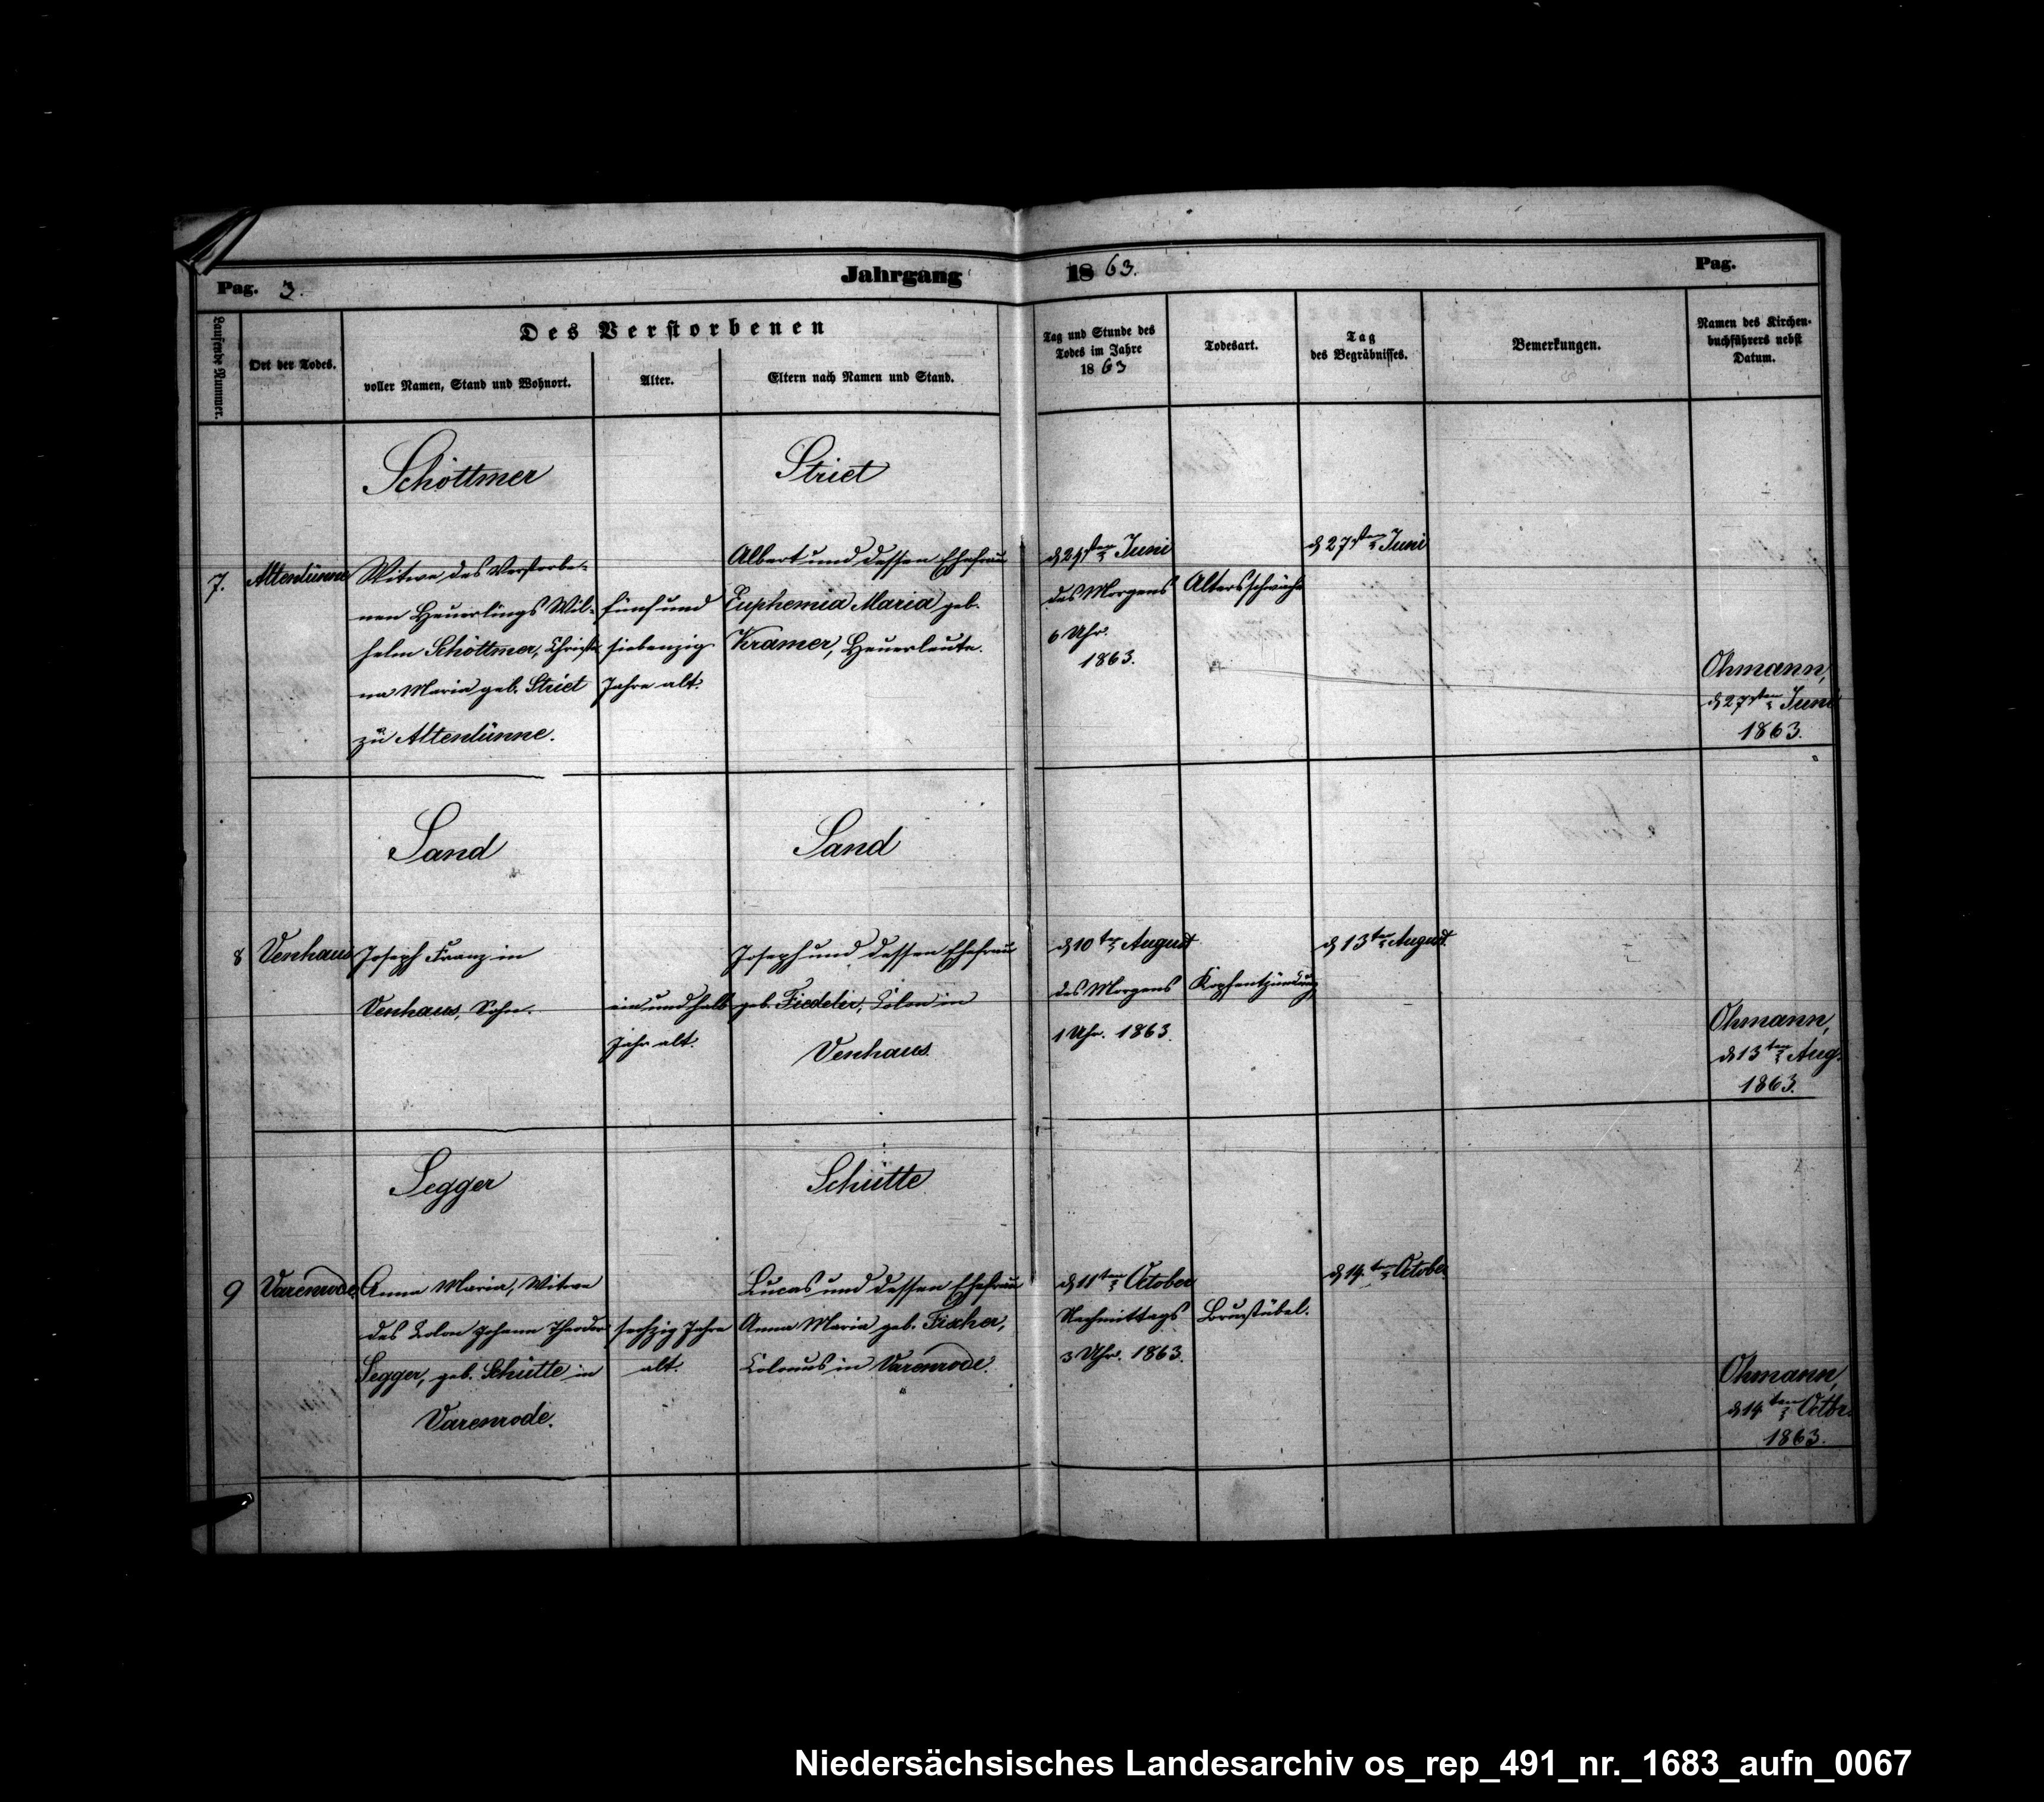 Pag. 3.
Jahrgang 1863.
Pag.
Laufende Nummer.
Ort der Todes.
Des Verstorbenen
voller Namen, Stand und Wohnort.
Alter.
Eltern nach Namen und Stand.
Tag und Stunde des
Todes im Jahre
1863
Todesart.
Tag
des Begräbnisses.
Bemerkungen.
Namen des Kirchen-
buchführers nebst
Datum.
Schöttmer
Striet
7.
Altenlünne
Witwe des Verstorbe-
nen Heuerlings Wil-
helm Schöttmer, Christi-
na Maria geb. Striet
zu Altenlünne.
fünf und
siebenzig
Jahre alt.
Albert und dessen Ehefrau
Euphemia Maria geb.
Kramer, Heuerleute.
d 24sten Juni
des Morgens
6 Uhr.
1863.
Altersschwäche
d 27sten Juni
Ohmann,
d 27sten Juni
1863.
Sand
Sand
8
Venhaus
Joseph Franz in
Venhaus, Sohn.
ein und halb
Jahr alt.
Joseph und dessen Ehefrau
geb. Fiedeler, Colon in
Venhaus.
d 10ten August
des Morgens
1 Uhr. 1863.
Kopfentzündung
d 13ten August.
Ohmann,
d 13ten Aug.
1863.
Segger
Schütte
9
Varenrode
Anna Maria, Witwe
des Colon Johann Theodor
Segger, geb. Schütte in
Varenrode.
sechzig Jahre
alt.
Lucas und dessen Ehefrau
Anna Maria geb. Fischer,
Colonus in Varenrode.
d 11ten October
Nachmittags
3 Uhr. 1863.
Brustübel.
d 14ten October.
Ohmann,
d 14ten Octbr.
1863.
Niedersächsisches Landesarchiv os_rep_491_nr._1683_aufn_0067